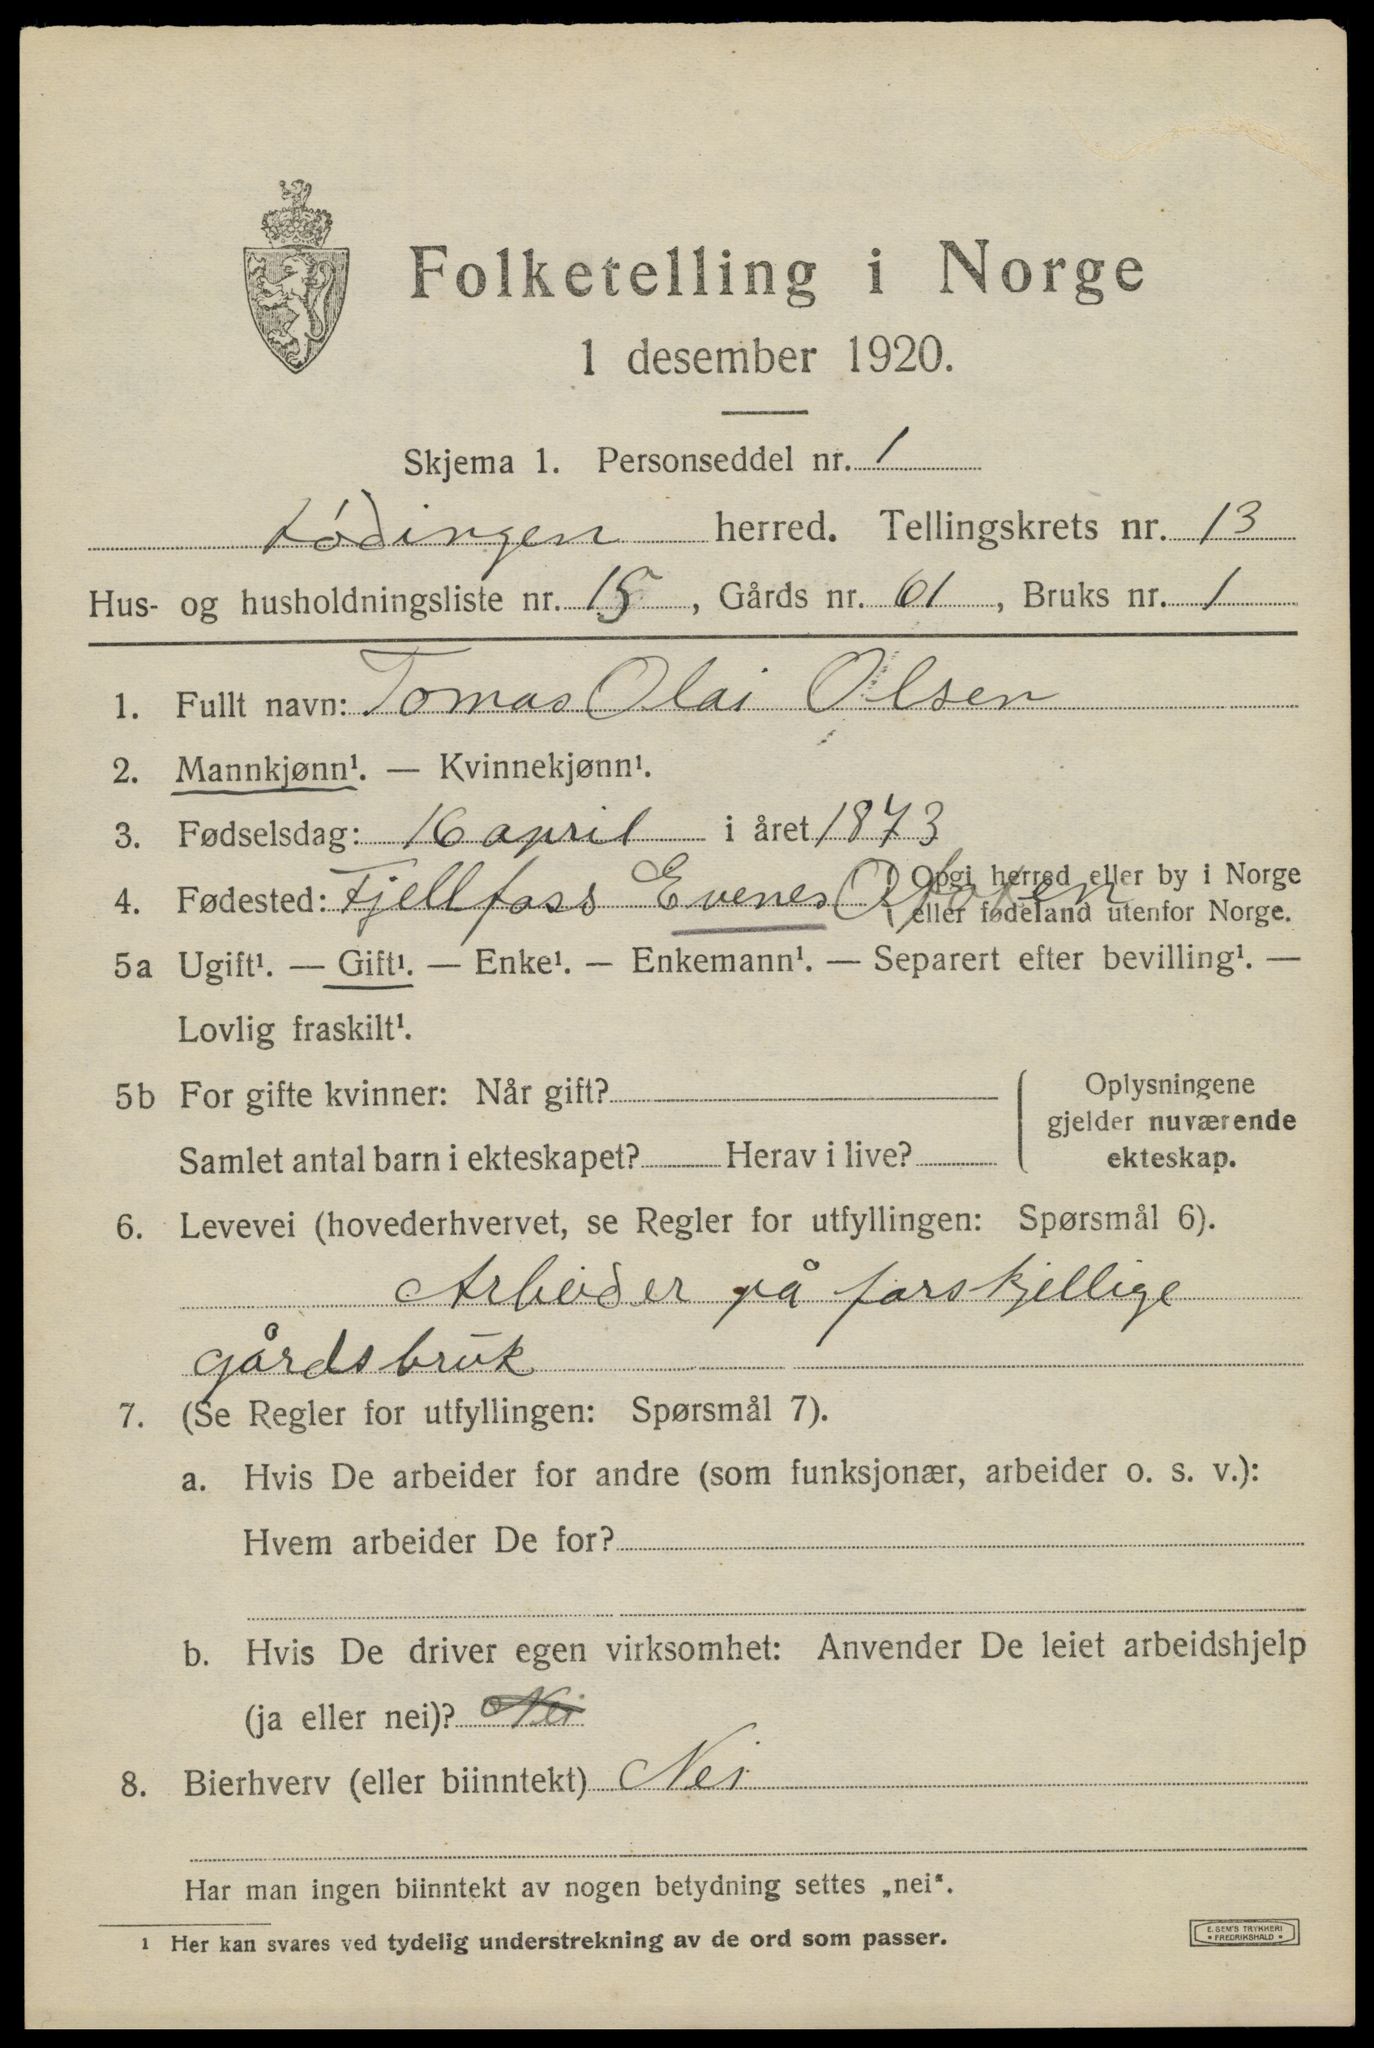 Folketelling i Norge
1 desember 1920.
Skjema 1. Personseddel nr. 1
Lødingen herred. Tellingskrets nr. 13
Hus- og husholdningsliste nr. 15, Gårds nr. 61, Bruks nr. 1
1. Fullt navn: Tomas Olai Olsen
2. Mannkjønn¹. — Kvinnekjønn¹.
3. Fødselsdag: 16 april i året 1873
4. Fødested: Fjellfoss Evenes Ofoten
Opgi herred eller by i Norge
eller fødeland utenfor Norge.
5a Ugift¹. — Gift¹. — Enke¹. — Enkemann¹. — Separert efter bevilling¹. —
Lovlig fraskilt¹.
5b For gifte kvinner: Når gift?
Samlet antal barn i ekteskapet? Herav i live?
Oplysningene
gjelder nuværende
ekteskap.
6. Levevei (hovederhvervet, se Regler for utfyllingen: Spørsmål 6).
Arbeider på forskjellige
gårdsbruk
7. (Se Regler for utfyllingen: Spørsmål 7).
a. Hvis De arbeider for andre (som funksjonær, arbeider o. s. v.):
Hvem arbeider De for?
b. Hvis De driver egen virksomhet: Anvender De leiet arbeidshjelp
(ja eller nei)? Nei
8. Bierhverv (eller biinntekt) Nei
Har man ingen biinntekt av nogen betydning settes „nei".
¹ Her kan svares ved tydelig understrekning av de ord som passer.
E. SEM'S TRYKKERI
• FREDRIKSHALD •